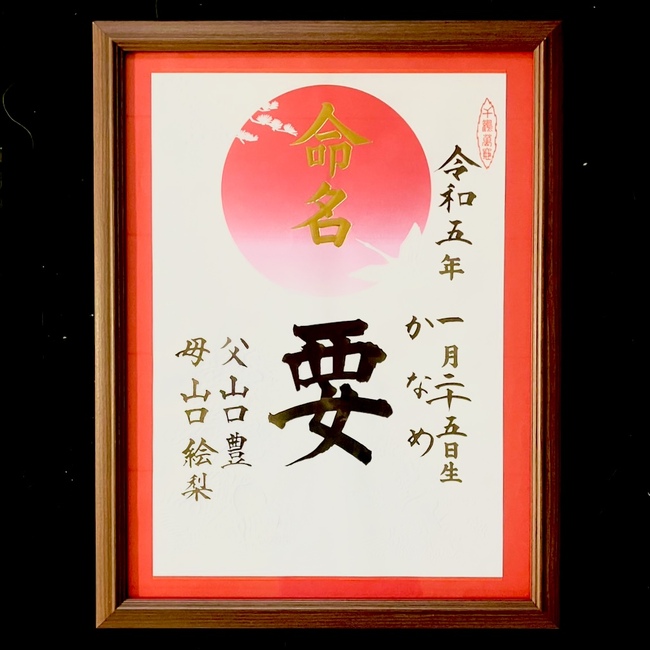 命名
令和五年
一月二十五日生
かなめ
要
父 山口 豊
母 山口 絵梨